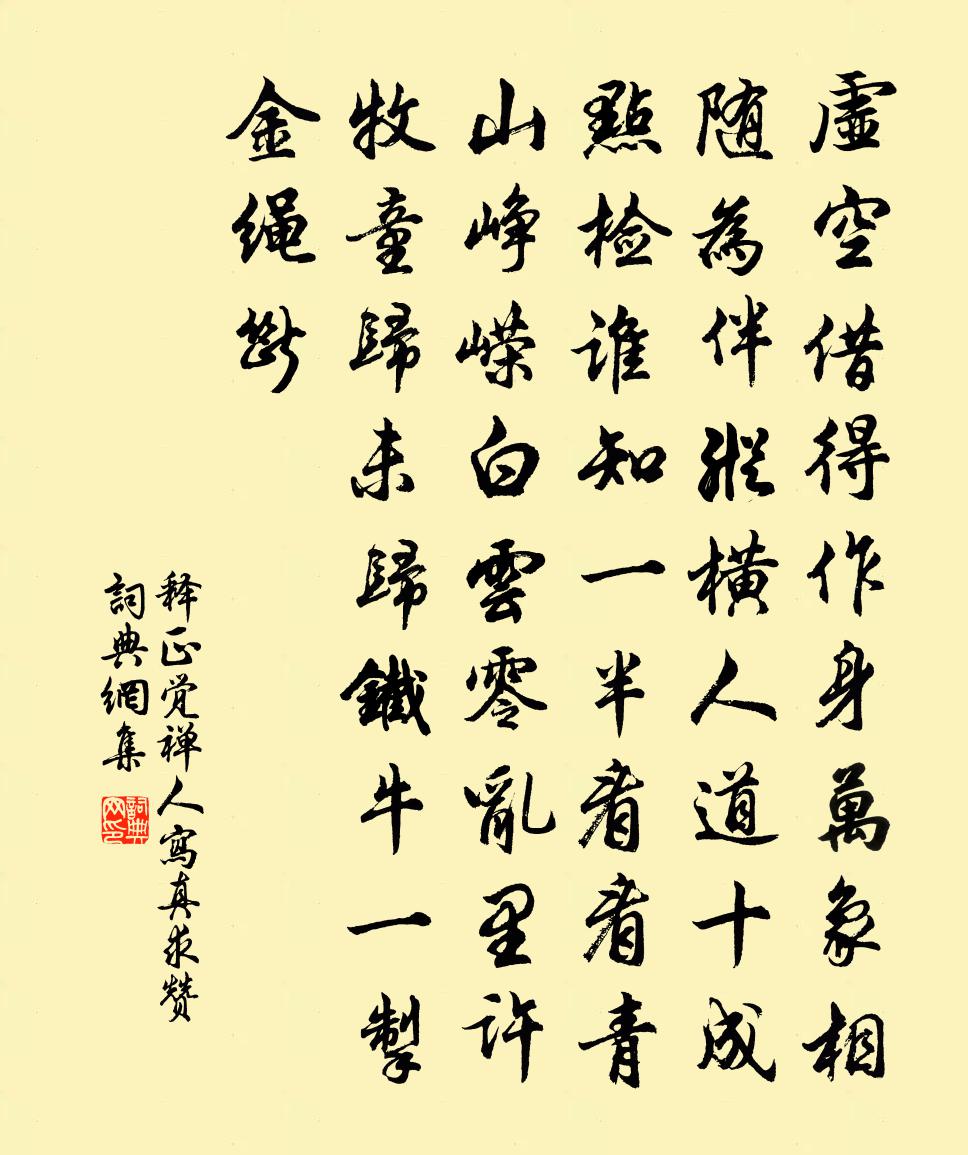 虚空借得作身萬象相
随為伴縱橫人道十成
點檢誰知一半看看青
山崢嶸白雲零亂里許
牧童歸未歸鐵牛一掣
金绳斷
释正觉禅人寫真求赞
詞典網集
詞典网印